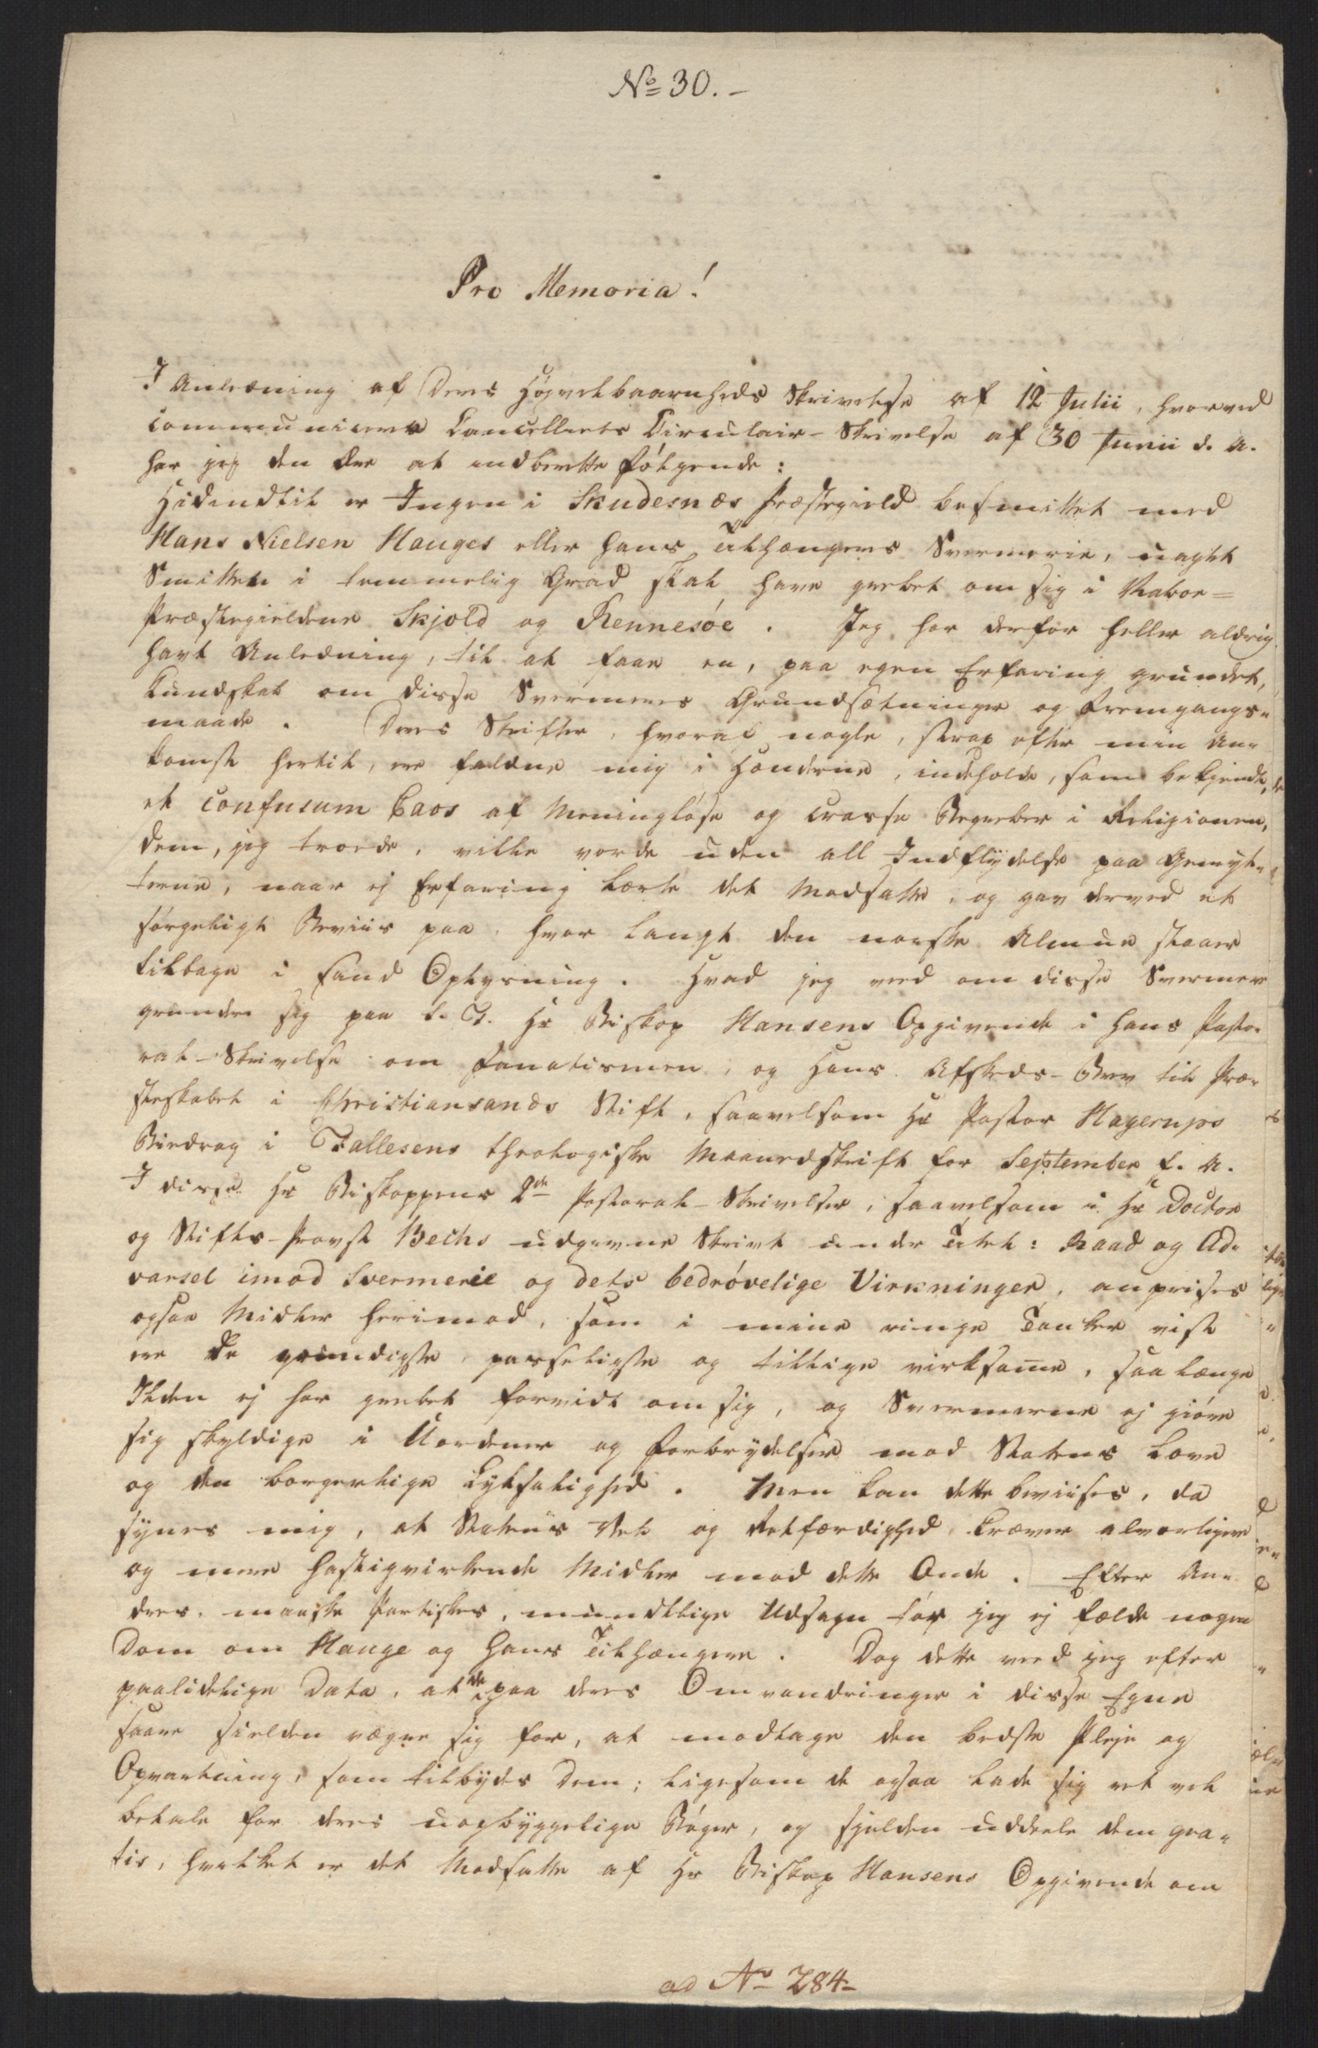 No 30. –
Pro Memoria!
I Anledning af Deres Højvelbaarnheds Skrivelse af 12 Julii, hvorved
communiceres Cancelliets Circulair-Skrivelse af 30 Junii d. A.
har jeg den Ære at indberette følgende:
Hidindtil er Ingen i Skudesnæs Præstegield besmittet med
Hans Nielsen Hauges eller hans Tilhængeres Svermerie, uagtet
Smitten i temmelig Grad skal have grebet om sig i Naboe=
Præstegieldene Skjold og Rennesøe. Jeg har derfor heller aldrig
havt Anledning, til at faae en, paa egen Erfaring grundet,
Kundskab om disse Svermeres Grundsætninger og Fremgangs=
maade. Deres Skrifter, hvoraf nogle, strax efter min An=
komst hertil, ere faldne mig i Hænderne, indeholde, som bekjendt,
et confusum Caos af Meningløse og crasse Begreber i Religionen,
dem, jeg troede, ville vorde uden all Indflydelse paa Gemyt=
terne, naar ej Erfaring lærte det Modsatte, og gav derved et
sørgeligt Beviis paa, hvor langt den norske Almue staaer
tilbage i sand Oplysning. Hvad jeg veed om disse Svermere
grunder sig paa S. T. Hr Biskop Hansens Opgivende i hans Pasto=
ral-Skrivelse om Fanatismen, og Hans Afskeds-Brev til Præ=
steskabet i Christiansands Stift, saavelsom Hr Pastor Hagerups
Biedrag i Fallesens theologiske Maanedskrift for September f. A.
I disse Hr Biskoppens 2de Pastoral-Skrivelser, saavelsom i Hr Doctor
og Stifts-Provst Bechs udgivne Skrivt under Titel: Raad og Ad=
varsel imod Svermerie og dets bedrøvelige Virkninger, anprises
ogsaa Midler herimod, som i mine ringe Tanker vist
ere de grundigste, passeligste og tillige virksomme, saa længe
Ilden ej har grebet forvidt om sig, og Svermerne ej giøre
sig skyldige i Uordener og Forbrydelser mod Statens Love
og den borgerlige Lyksalighed. Men kan dette beviises, da
synes mig, at Statens Vel og Retfærdighed kræver alvorligere
og mere hastigvirkende Midler mod dette Onde. Efter An=
dres, maaske Partiskes, mundtlige Udsagn tør jeg ej fælde nogen
Dom om Hauge og hans Tilhængere. Dog dette veed jeg efter
paalidelige Data, at de paa deres Omvandringer i disse Egne
saare sielden vægre sig for, at modtage den bedste Pleje og
Opvartning, som tilbydes dem; ligesom de ogsaa lade sig ret vel
betale for deres uopbyggelige Bøger, og sjelden uddeele dem gra=
tis, hvilket er det Modsatte af Hr Biskop Hansens Opgivende om
ad No 284